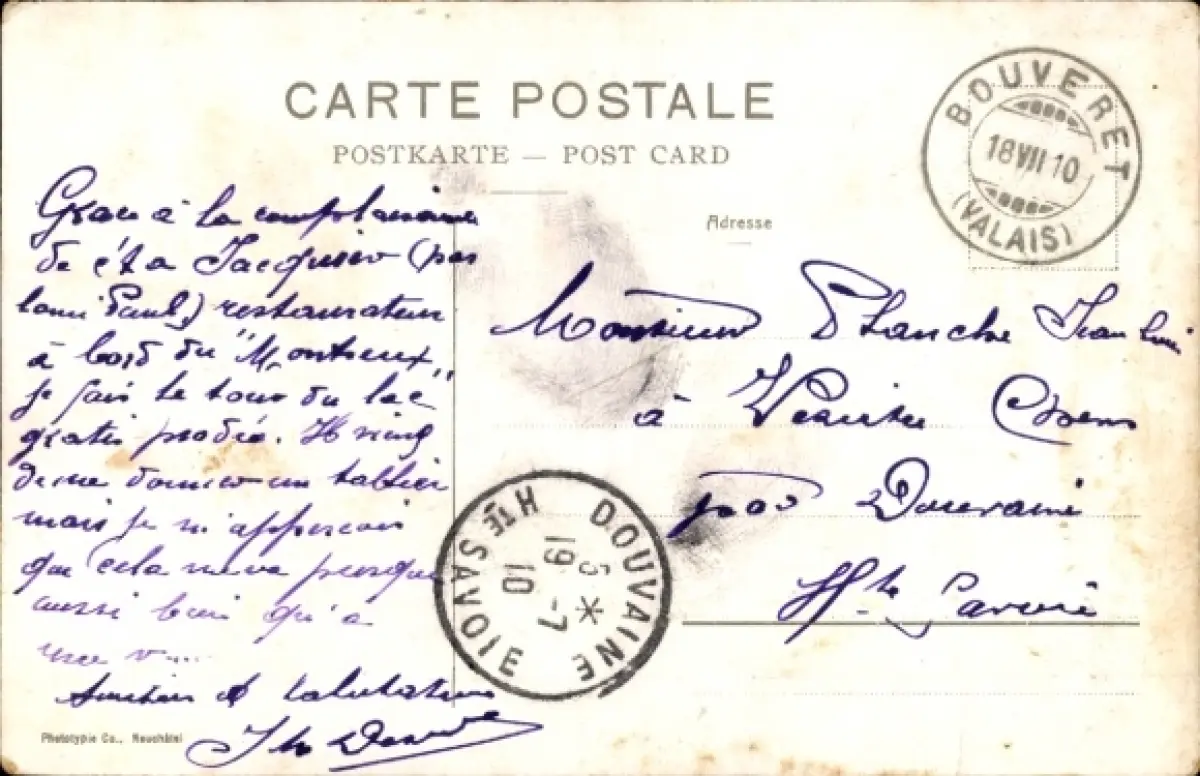 CARTE POSTALE
POSTKARTE — POST CARD
Adresse
BOUVERET
18 VII 10
(VALAIS)
Grace à la complaisance
de Jacquier (pas
l'ami Paul) restaurateur
à bord du "Montreux"
je fais le tour du lac
gratis prodéo. Il vient
de me donner un tablier
mais je m'apperçois
que cela me va presque
aussi bien qu'à
une v....
Amitiés et salutations
Monsieur Planche Jean Louis
à Chens
par Douvaine
Hte Savoie
DOUVAINE
19 -7
10
HTE SAVOIE
Phototypie Co., Neuchâtel